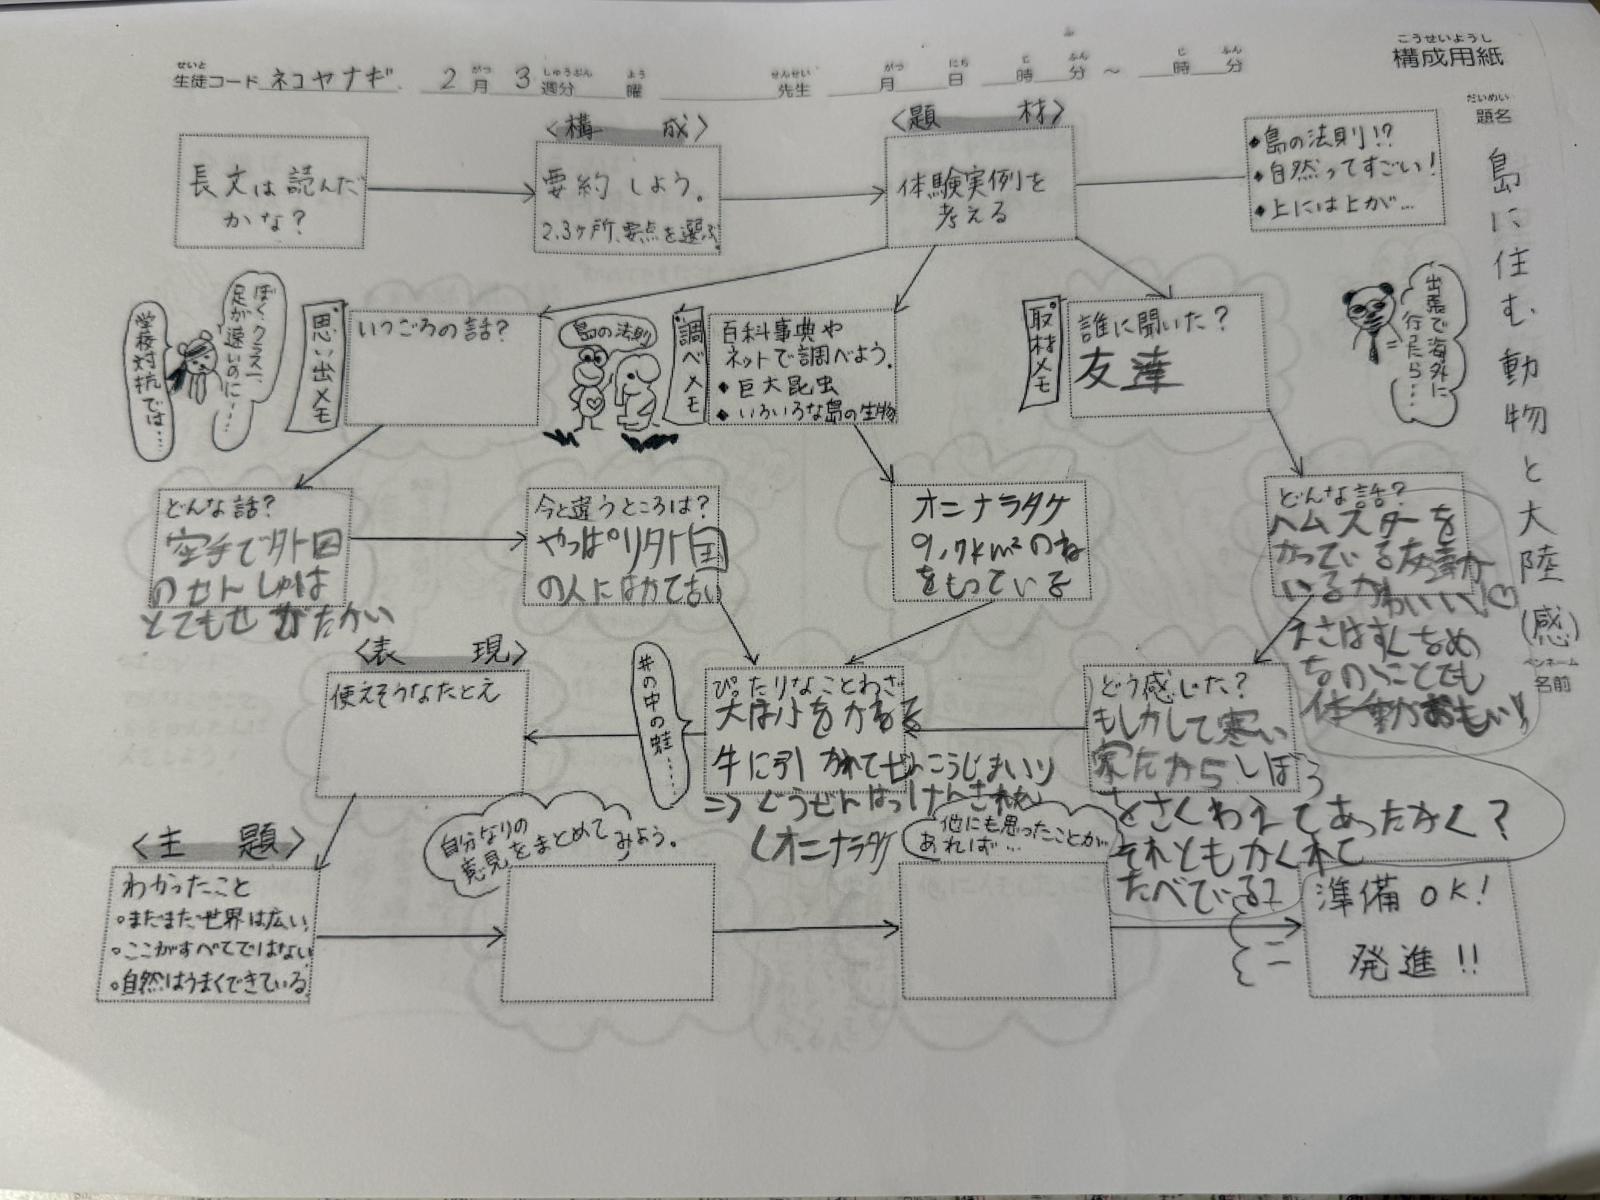 こうせいようし
構成用紙
せいと がつ しゅうぶん よう せんせい がつ にち じ ふん じ ふん
生徒コード ネコヤナギ. 2月 3週分 曜 先生 月 日 時 分 ~ 時 分
だいめい
題名
島に住む動物と大陸(感)
ペンネーム
名前
長文は読んだ
かな?
<構 成>
要約しよう。
2.3ヶ所、要点を選ぶ
<題 材>
体験実例を
考える
◆島の法則!?
◆自然ってすごい!
◆上には上が…
学校対抗では…
ぼく、クラス一、
足が速いのに…
思い出メモ
いつごろの話?
島の法則
調べメモ
百科事典や
ネットで調べよう。
◆巨大昆虫
◆いろいろな島の生物
取材メモ
誰に聞いた?
友達
出張で海外に
行ったら…
どんな話?
空手で外国
のせんしゅは
とてもせがたかい
今と違うところは?
やっぱり外国
の人にはかてない
オニナラタケ
9.7km²のね
をもっている
どんな話?
ハムスターを
かっている友達が
いるがかわいい!♡
えさは
なのにとても
<表 現>
使えそうなたとえ
井の中の蛙……
ぴったりなことわざ
大は小をかねる
牛に引かれてぜんこうじまいり
⇒ぐうぜんはっけんされた
(オニナラタケ
どう感じた?
もしかして寒い
家だから
あったかく?
それともかくれて
たべている?
<主 題>
わかったこと
◦まだまだ世界は広い
◦ここがすべてではない
◦自然はうまくできている
自分なりの
意見をまとめて
みよう。
他にも思ったことが
あれば…
準備OK!
発進!!